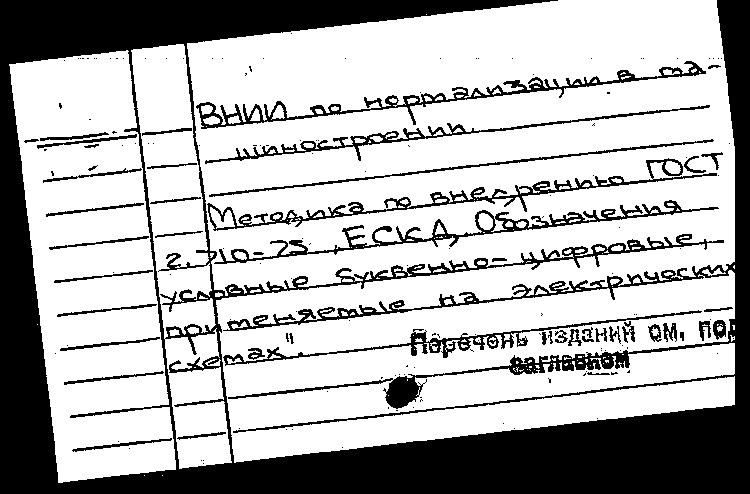 ВНИИ по нормализации в ма-
шиностроении.
Методика по внедрению ГОСТ
2.710-75 „ЕСКД. Обозначения
условные буквенно-цифровые,
применяемые на электрических
схемах".
Перечень изданий см. под
заглавном